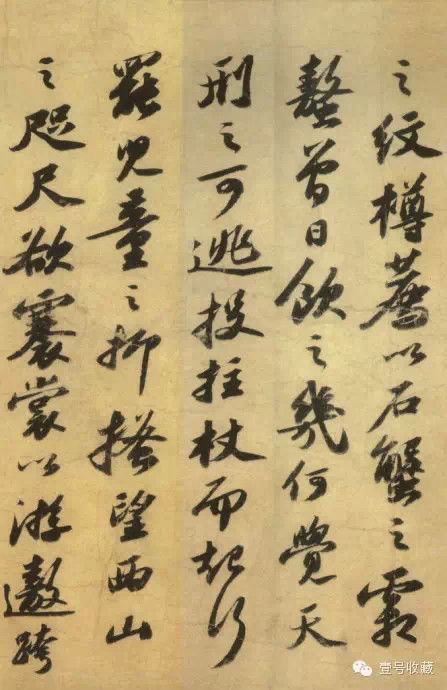 之紋樽薦以石蟹之霜
螯曾日飲之幾何覺天
刑之可逃投拄杖而起行
罷兒童之抑搔望西山
之咫尺欲褰裳以游遨跨
壹号收藏